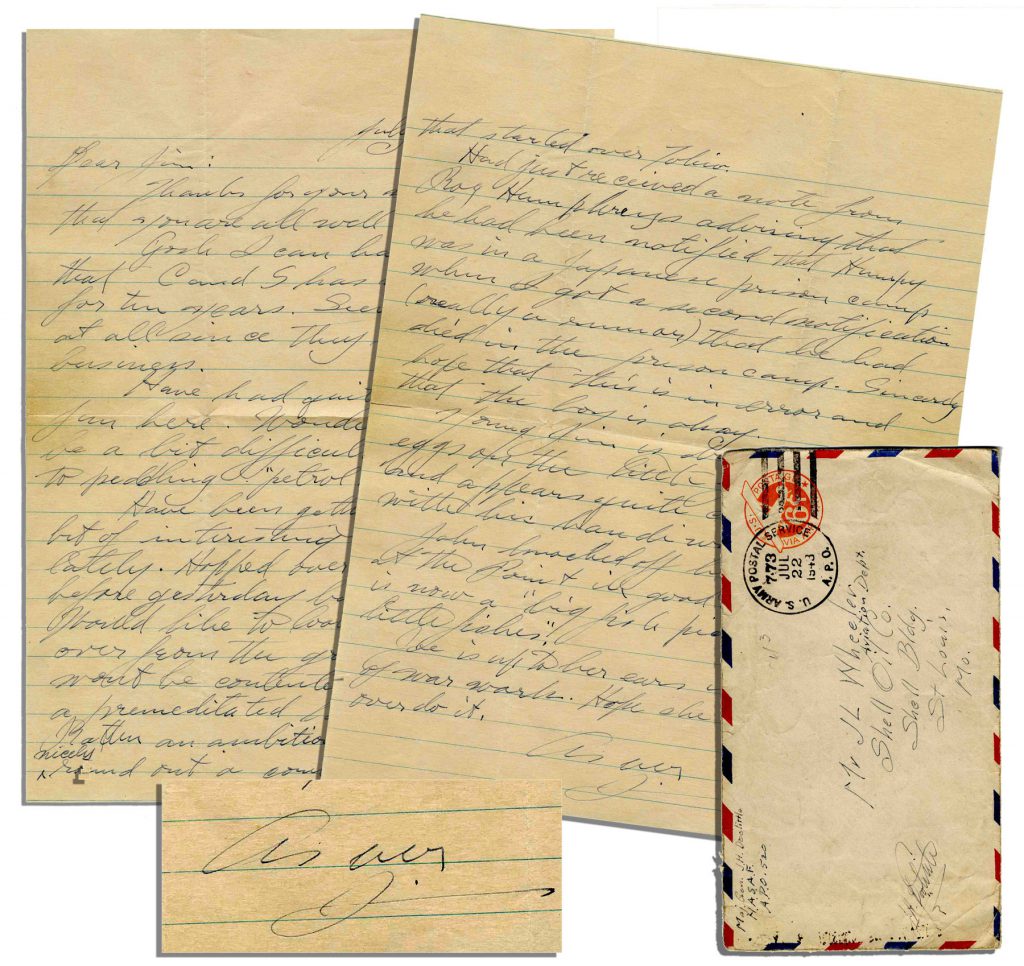 July
Dear Jim:
Thanks for your
that you are all well
Gosh I can ha
that C and S has
for ten years.
at all since they
business.
Have had qui
fun here. Wonde
be a bit difficul
to peddling "petrol
Have been gett
bit of interesting
lately. Hopped over
before yesterday
Would like to loo
over from the gr
wont be contente
a premeditated
Rather an ambition
nicely
round out a com
that started over Tokio.
Had just received a note from
Roy Humphreys advising that
he had been notified that Humpy
was in a Japanese prison camp
when I got a second notification
(really a rumor) that he had
died in the prison camp. Sincerely
hope that this is in error and
that the boy is okay.
Young Jim is
eggs on the little
and appears quite
with his
John knocked off
at the Point in good
is now a "big fish
little fishes".
Joe is up to her ears
of war work. Hope she
overdo it.
As ever
J.
As ever
J.
POSTAGE
6
VIA
U.S. ARMY POSTAL SERVICE
773
JUL
22
1943
A.P.O.
Mr JL Wheeler
Aviation Dept.
Shell Oil Co.
Shell Bldg.
St Louis,
Mo.
Maj. Gen. J.H. Doolittle
NASAF
A.P.O. 520